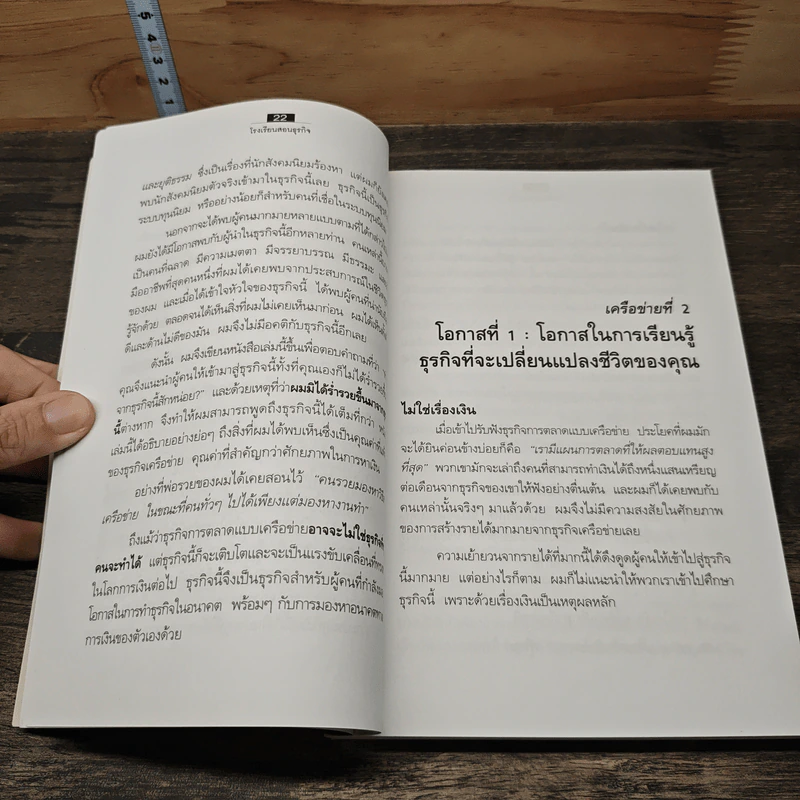 5 4 3 2 1
22
โรงเรียนสอนธุรกิจ
และยุติธรรม ซึ่งเป็นเรื่องที่นักสังคมนิยมร้องหา แต่ผมก็
พบนักสังคมนิยมตัวจริงเข้ามาในธุรกิจนี้เลย ธุรกิจนี้เป็น
ระบบทุนนิยม หรืออย่างน้อยก็สำหรับคนที่เชื่อในระบบทุนนิยม
นอกจากจะได้พบผู้คนมากมายหลายแบบตามที่ได้กล่าว
ผมยังได้มีโอกาสพบกับผู้นำในธุรกิจนี้อีกหลายท่าน คนเหล่านี้
เป็นคนที่ฉลาด มีความเมตตา มีจรรยาบรรณ มีธรรมะ
มืออาชีพที่สุดคนหนึ่งที่ผมได้เคยพบจากประสบการณ์ในชีวิต
ของผม และเมื่อได้เข้าใจหัวใจของธุรกิจนี้ ได้พบผู้คนที่น่า
รู้จักด้วย ตลอดจนได้เห็นสิ่งที่ผมไม่เคยเห็นมาก่อน ผมได้เห็น
ดีและด้านไม่ดีของมัน ผมจึงไม่มีอคติกับธุรกิจนี้อีกเลย
ดังนั้น ผมจึงเขียนหนังสือเล่มนี้ขึ้นเพื่อตอบคำถามที่ว่า
คุณจึงแนะนำผู้คนให้เข้ามาสู่ธุรกิจนี้ทั้งที่คุณเองก็ไม่ได้ร่ำรวย
จากธุรกิจนี้สักหน่อย?" และด้วยเหตุที่ว่าผมมิได้ร่ำรวยขึ้นมาจาก
นี้ต่างหาก จึงทำให้ผมสามารถพูดถึงธุรกิจนี้ได้เต็มที่กว่า
เล่มนี้ได้อธิบายอย่างย่อๆ ถึงสิ่งที่ผมได้พบเห็นซึ่งเป็นคุณค่าที่
ของธุรกิจเครือข่าย คุณค่าที่สำคัญกว่าศักยภาพในการหาเงิน
อย่างที่พ่อรวยของผมได้เคยสอนไว้ "คนรวยมองหา
เครือข่าย ในขณะที่คนทั่วๆ ไปได้เพียงแต่มองหางานทำ"
ถึงแม้ว่าธุรกิจการตลาดแบบเครือข่ายอาจจะไม่ใช่ธุรกิจ
คนจะทำได้ แต่ธุรกิจนี้ก็จะเติบโตและจะเป็นแรงขับเคลื่อนที่
ในโลกการเงินต่อไป ธุรกิจนี้จึงเป็นธุรกิจสำหรับผู้คนที่กำลัง
โอกาสในการทำธุรกิจในอนาคต พร้อมๆ กับการมองหาอนาคต
การเงินของตัวเองด้วย
เครือข่ายที่ 2
โอกาสที่ 1 : โอกาสในการเรียนรู้
ธุรกิจที่จะเปลี่ยนแปลงชีวิตของคุณ
ไม่ใช่เรื่องเงิน
เมื่อเข้าไปรับฟังธุรกิจการตลาดแบบเครือข่าย ประโยคที่ผมมัก
จะได้ยินค่อนข้างบ่อยก็คือ "เรามีแผนการตลาดที่ให้ผลตอบแทนสูง
ที่สุด" พวกเขามักจะเล่าถึงคนที่สามารถทำเงินได้ถึงหนึ่งแสนเหรียญ
ต่อเดือนจากธุรกิจของเขาให้ฟังอย่างตื่นเต้น และผมก็ได้เคยพบกับ
คนเหล่านั้นจริงๆ มาแล้วด้วย ผมจึงไม่มีความสงสัยในศักยภาพ
ของการสร้างรายได้มากมายจากธุรกิจเครือข่ายเลย
ความเย้ายวนจากรายได้ที่มากนี้ได้ดึงดูดผู้คนให้เข้าไปสู่ธุรกิจ
นี้มากมาย แต่อย่างไรก็ตาม ผมก็ไม่แนะนำให้พวกเราเข้าไปศึกษา
ธุรกิจนี้ เพราะด้วยเรื่องเงินเป็นเหตุผลหลัก